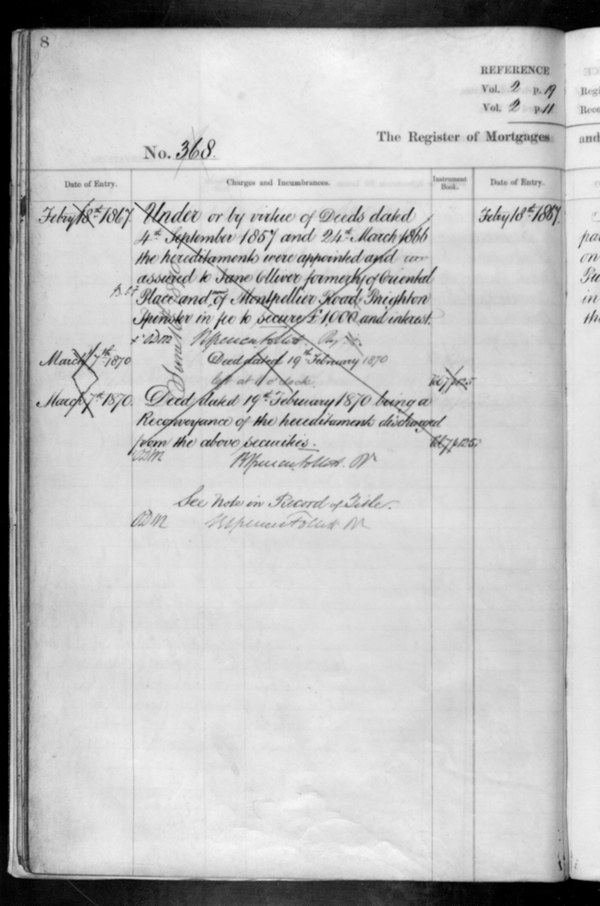 8
REFERENCE
Vol. 2 p. 19
Vol. 2 p. 11
The Register of Mortgages
and
No. 368.
Date of Entry.
Charges and Incumbrances.
Instrument Book.
Date of Entry.
Feby 18th 1867
Under or by virtue of Deeds dated
Feby 18th 1867
4th September 1857 and 24th March 1866
the hereditaments were appointed and
assured to Jane Olliver formerly of Oriental
Place and of Montpellier Road Brighton
Spinster in fee to secure £1000 and interest.
March 7th 1870
Deed dated 19th February 1870
left at o'clock
Vol 7 p 125
March 7th 1870.
Deed dated 19th February 1870 being a
Reconveyance of the hereditaments discharged
from the above securities.
Vol 7 p 125
See Note in Record of Title.